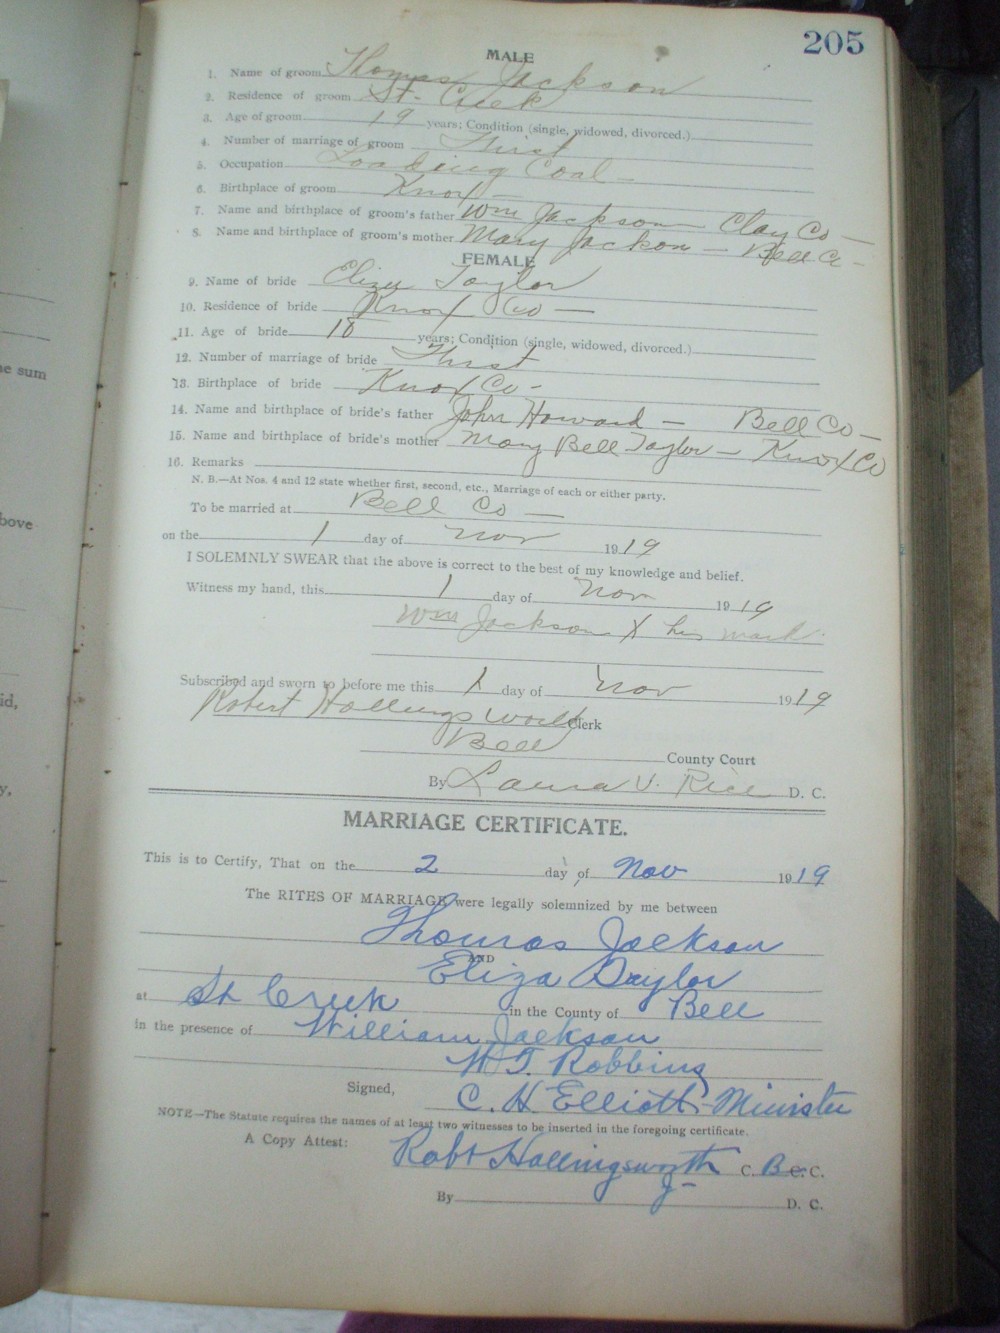 205
MALE
1. Name of groom Thomas Jackson
2. Residence of groom St. Creek
3. Age of groom 19 years; Condition (single, widowed, divorced.)
4. Number of marriage of groom First
5. Occupation Loading Coal —
6. Birthplace of groom Knox —
7. Name and birthplace of groom's father Wm Jackson — Clay Co —
8. Name and birthplace of groom's mother Mary Jackon — Bell Co —
FEMALE
9. Name of bride Eliza Taylor
10. Residence of bride Knox Co —
11. Age of bride 18 years; Condition (single, widowed, divorced.)
12. Number of marriage of bride First
13. Birthplace of bride Knox Co —
14. Name and birthplace of bride's father John Howard — Bell Co —
15. Name and birthplace of bride's mother Mary Bell Taylor — Knox Co
16. Remarks
N. B.—At Nos. 4 and 12 state whether first, second, etc., Marriage of each or either party.
To be married at Bell Co —
on the 1 day of Nov 1919
I SOLEMNLY SWEAR that the above is correct to the best of my knowledge and belief.
Witness my hand, this 1 day of Nov 1919
Wm Jackson X his mark
Subscribed and sworn to before me this 1 day of Nov 1919
Robert Hollingsworth Clerk
Bell County Court
By Laura V. Rice D. C.
MARRIAGE CERTIFICATE.
This is to Certify, That on the 2 day of Nov 1919
The RITES OF MARRIAGE were legally solemnized by me between
Thomas Jackson
AND
Eliza Daylor
at St Creek in the County of Bell
in the presence of William Jackson
W. T. Robbins
Signed, C. H. Elliott - Minister
NOTE—The Statute requires the names of at least two witnesses to be inserted in the foregoing certificate.
A Copy Attest: Robt Hollingsworth C. B. C. C.
By D. C.
he sum
bove
id,
y,